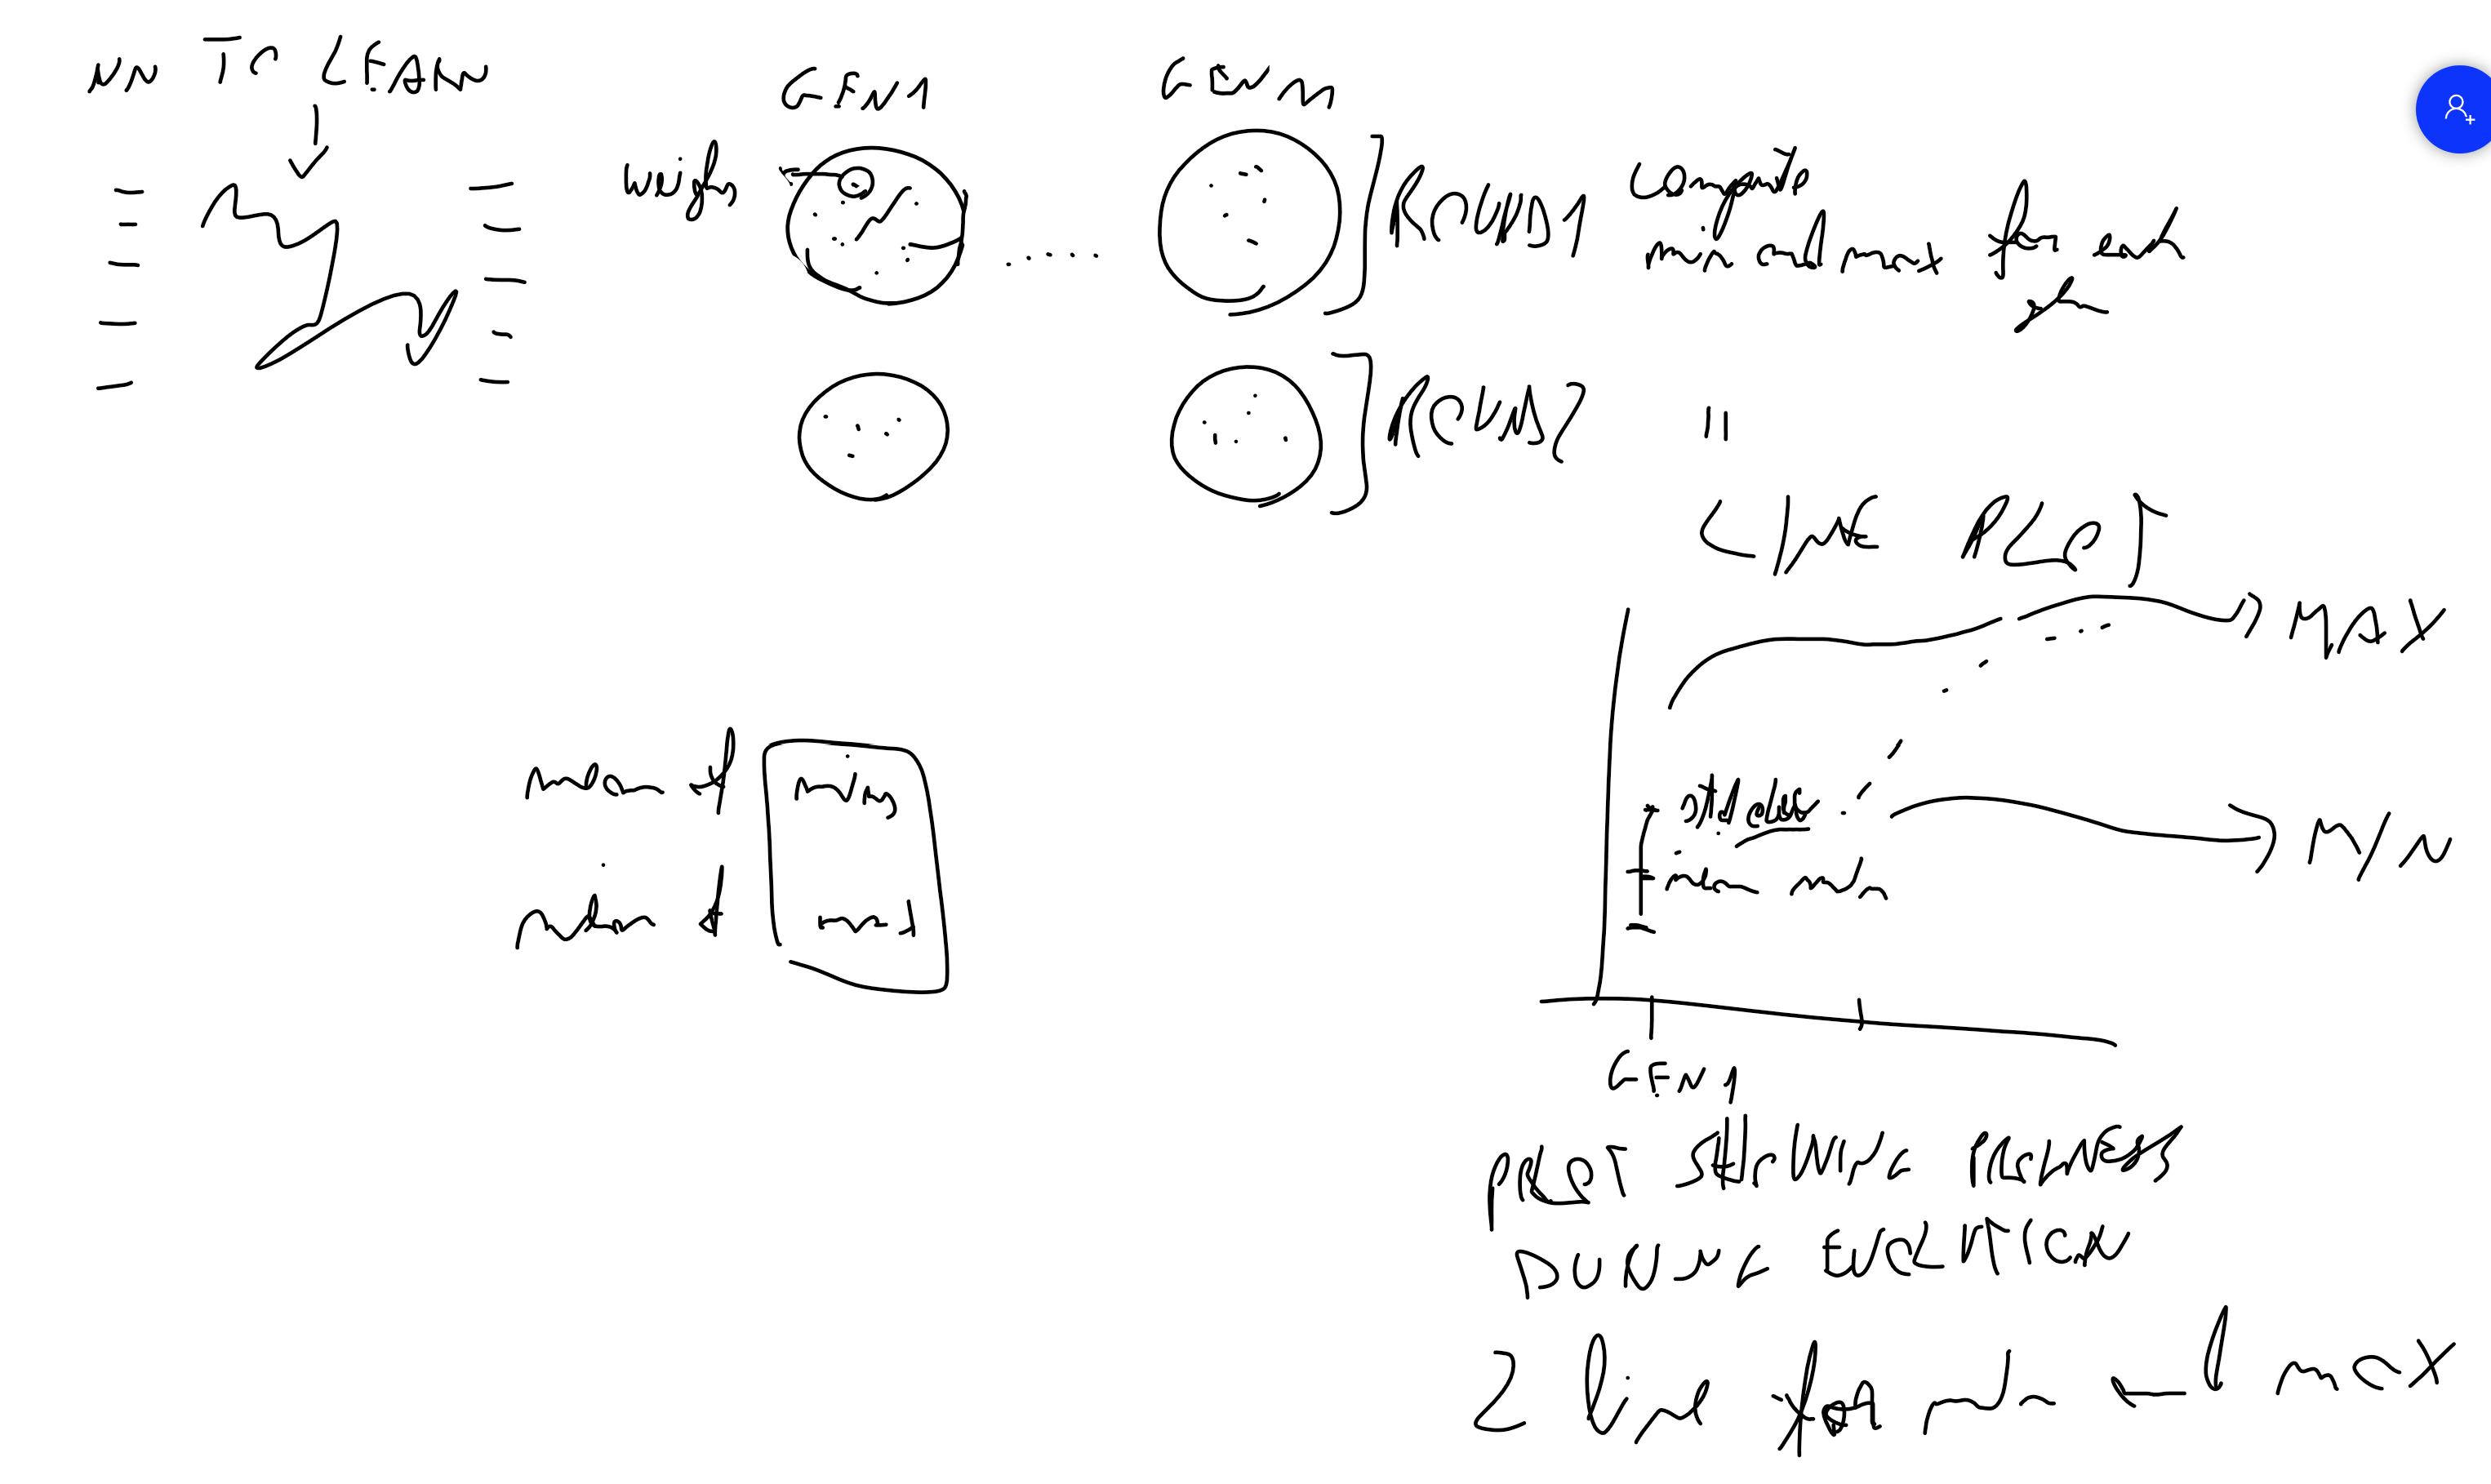 NN TO LEARN
GEN 1
GEN m
weights
ROUND 1
compute
min and max for each
gen
ROUND 2
"
LINE PLOT
MAX
mean of mins
min
GEN 1
PLOT SHOWING PROGRESS
DURING EVOLUTION
2 line for min and max
MIN